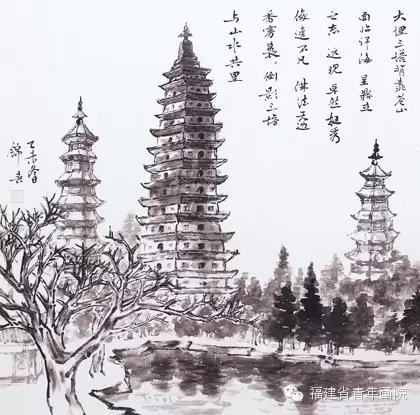 大理三塔背靠苍山
面临洱海 呈鼎立
之态 远观 卓然挺秀
俊逸不凡 佛法无边
香雾袅 倒影三塔
与山水共
乙未冬
锦
福建省青年画院